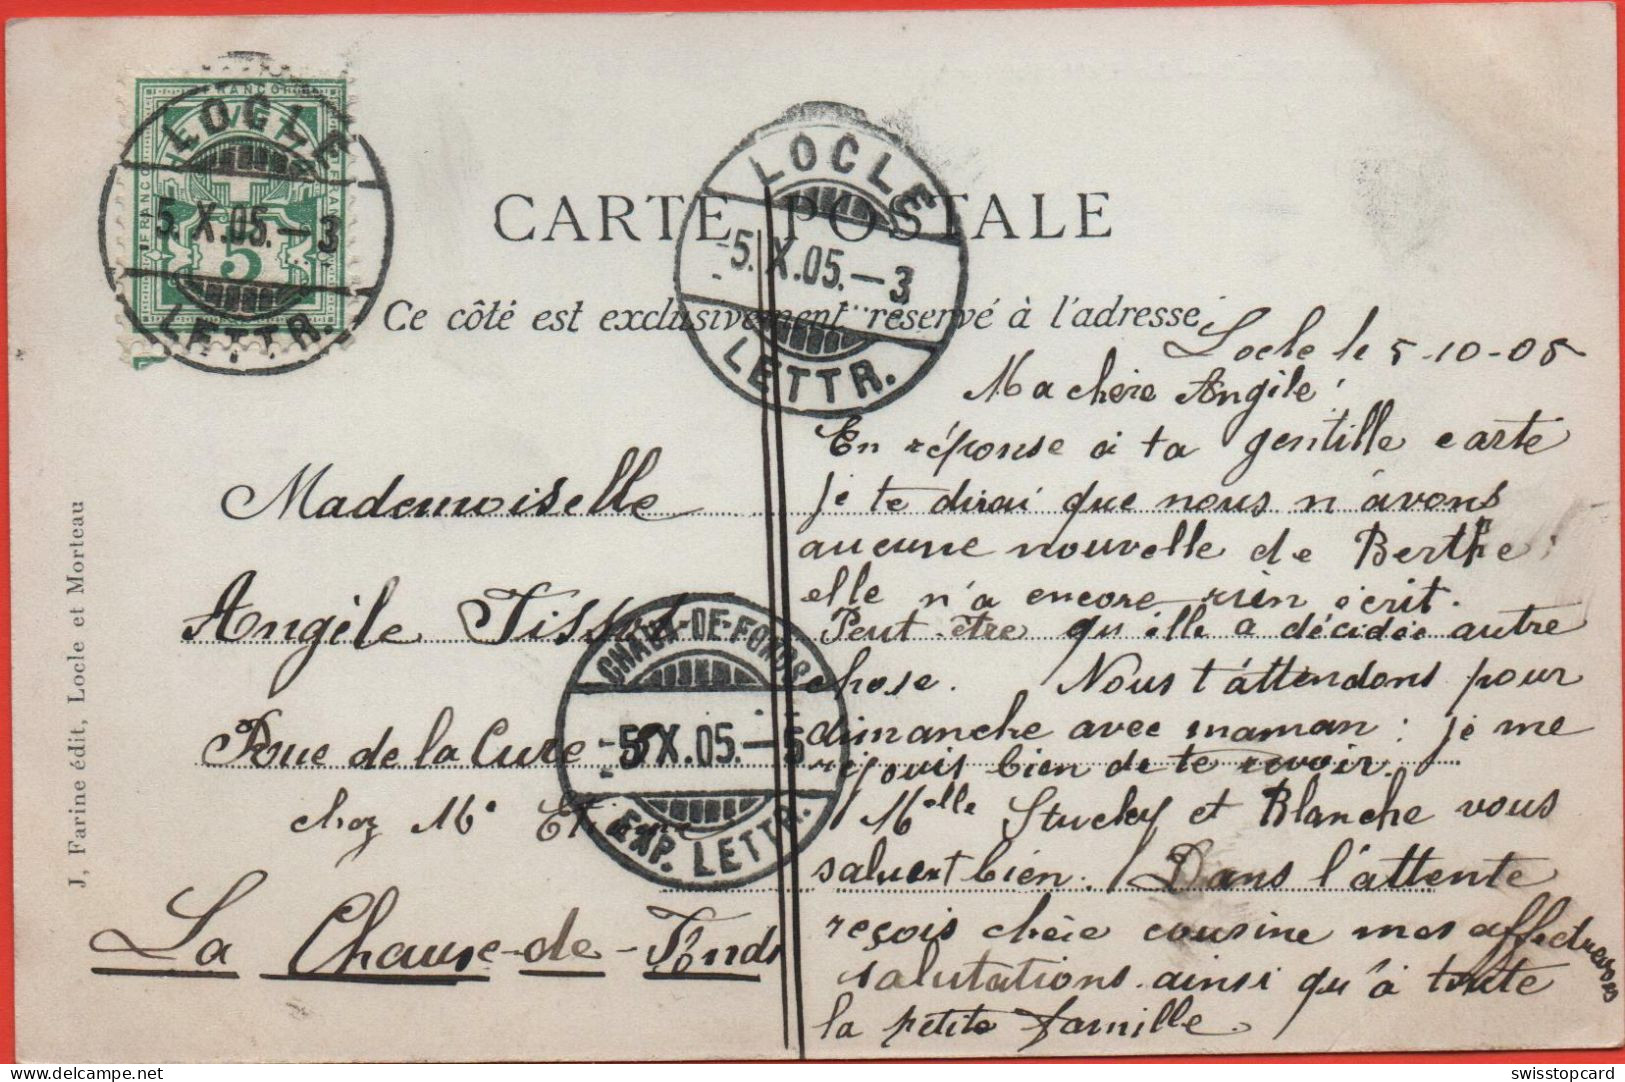 FRANCO
FRANCO
FRANCO
5
LOCLE
-5.X.05.-3
LETTR.
LOCLE
-5.X.05.-3
LETTR.
CARTE POSTALE
Ce côté est exclusivement réservé à l'adresse
J, Farine édit, Locle et Morteau
Mademoiselle
Angèle Tissot
Rue de la Cure 5
chez Mr
La Chaux-de-Fonds
CHAUX-DE-FONDS
-5.X.05.-5
EXP. LETTR.
Locle le 5-10-05
Ma chère Angèle!
En réponse à ta gentille carte
je te dirai que nous n'avons
aucune nouvelle de Berthe;
elle n'a encore rien écrit.
Peut-être qu'elle a décidée autre
chose. Nous t'attendons pour
dimanche avec maman: je me
réjouis bien de te revoir.
Melle Stucky et Blanche vous
saluent bien. Dans l'attente
reçois chère cousine mes affectueuses
salutations ainsi qu'à toute
la petite famille.
swisstopcard